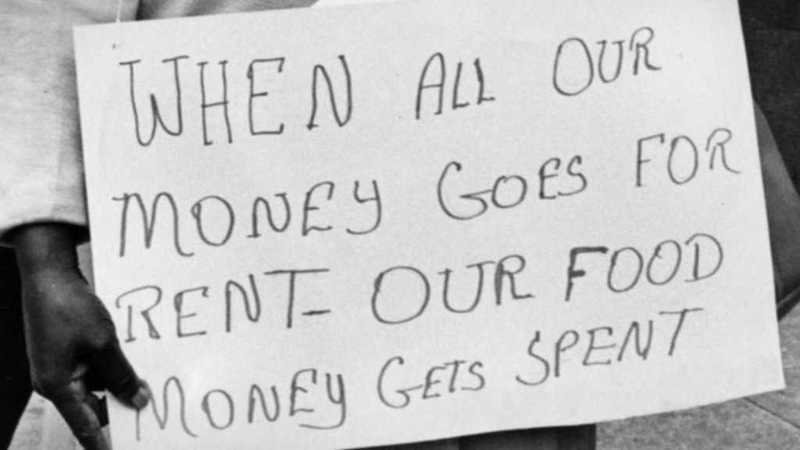 WHEN ALL OUR
MONEY GOES FOR
RENT - OUR FOOD
MONEY GETS SPENT